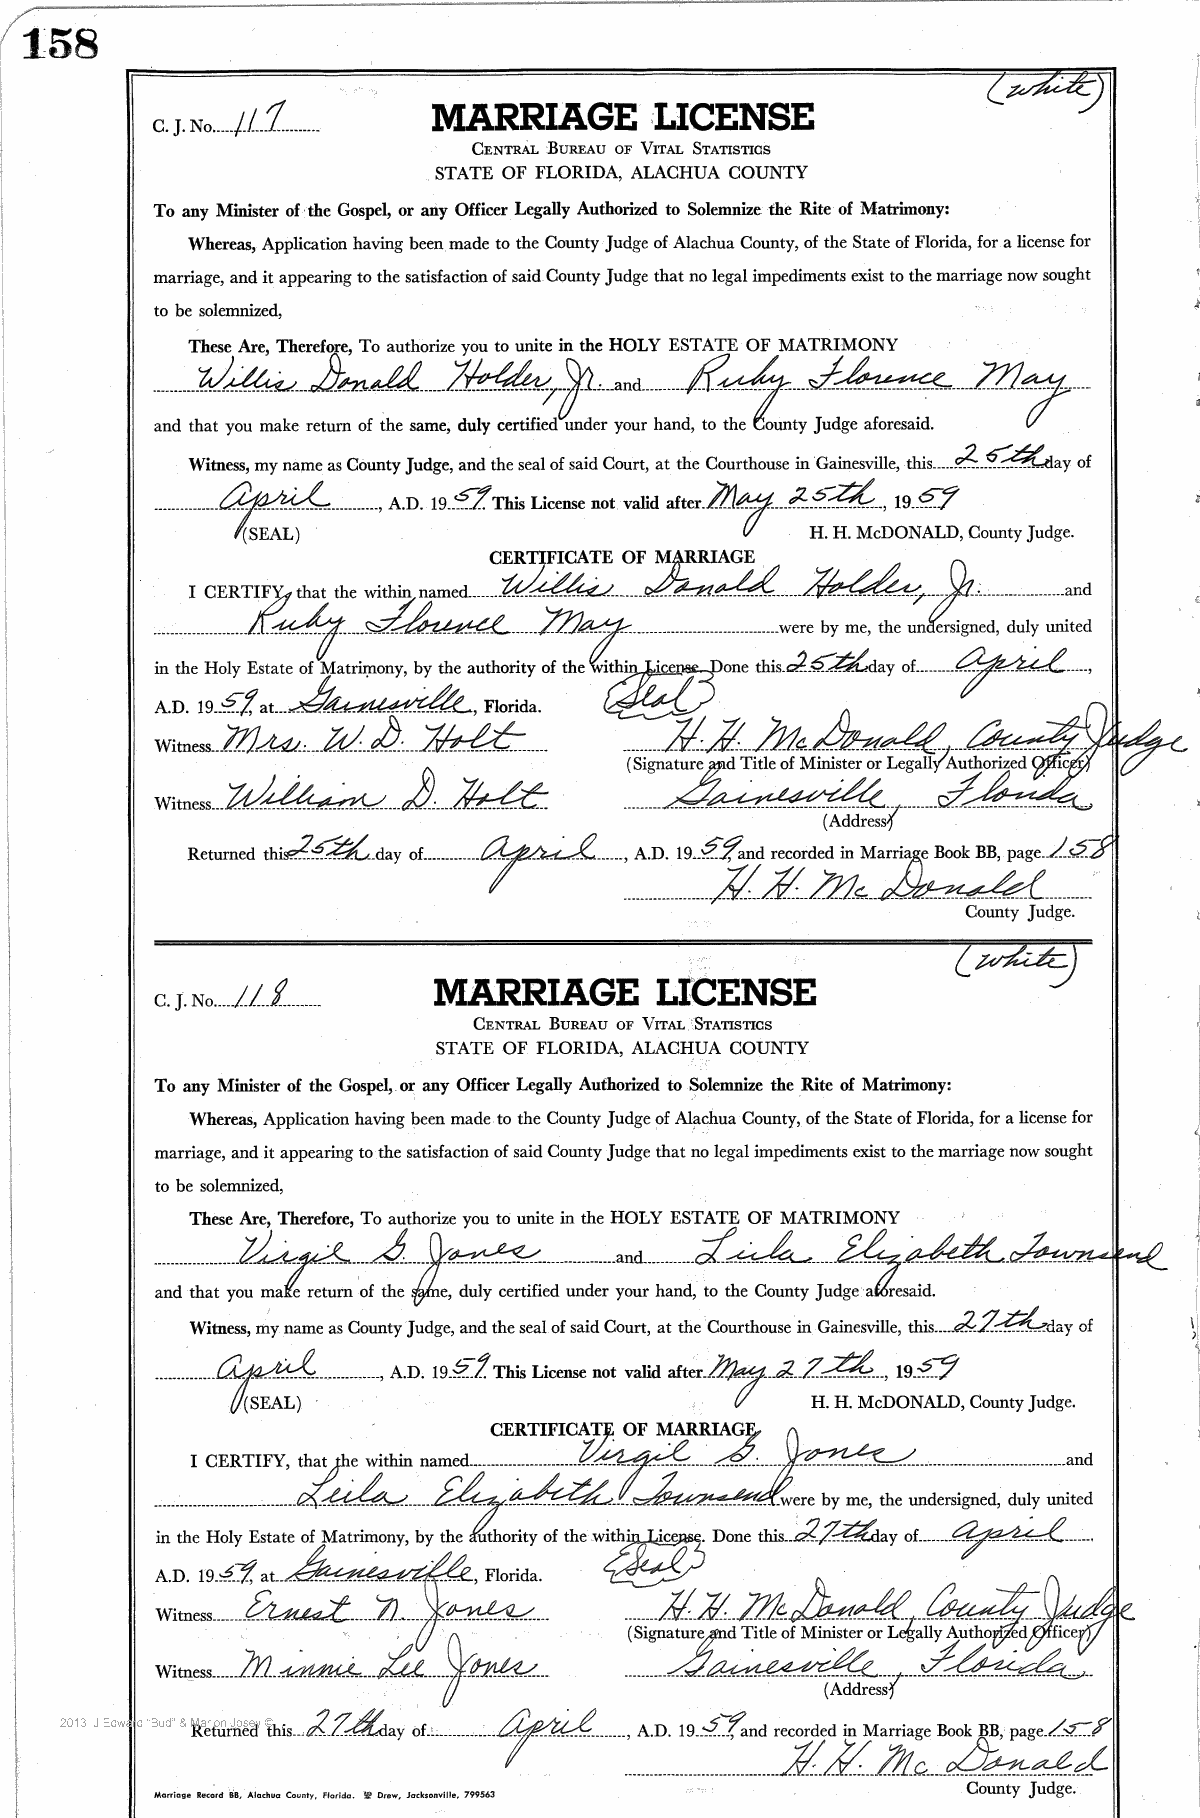 158
(white)
C. J. No. 117
MARRIAGE LICENSE
CENTRAL BUREAU OF VITAL STATISTICS
STATE OF FLORIDA, ALACHUA COUNTY
To any Minister of the Gospel, or any Officer Legally Authorized to Solemnize the Rite of Matrimony:
Whereas, Application having been made to the County Judge of Alachua County, of the State of Florida, for a license for
marriage, and it appearing to the satisfaction of said County Judge that no legal impediments exist to the marriage now sought
to be solemnized,
These Are, Therefore, To authorize you to unite in the HOLY ESTATE OF MATRIMONY
Willis Donald Holder, Jr. and Ruby Florence May
and that you make return of the same, duly certified under your hand, to the County Judge aforesaid.
Witness, my name as County Judge, and the seal of said Court, at the Courthouse in Gainesville, this 25th day of
April, A.D. 1959. This License not valid after May 25th, 1959
(SEAL) H. H. McDONALD, County Judge.
CERTIFICATE OF MARRIAGE
I CERTIFY, that the within named Willis Donald Holder, Jr. and
Ruby Florence May were by me, the undersigned, duly united
in the Holy Estate of Matrimony, by the authority of the within License. Done this 25th day of April,
A.D. 1959, at Gainesville, Florida. (Seal)
Witness Mrs. W. D. Holt H. H. McDonald, County Judge
(Signature and Title of Minister or Legally Authorized Officer)
Witness William D. Holt Gainesville, Florida
(Address)
Returned this 25th day of April, A.D. 1959, and recorded in Marriage Book BB, page 158
H. H. McDonald
County Judge.
(white)
C. J. No. 118
MARRIAGE LICENSE
CENTRAL BUREAU OF VITAL STATISTICS
STATE OF FLORIDA, ALACHUA COUNTY
To any Minister of the Gospel, or any Officer Legally Authorized to Solemnize the Rite of Matrimony:
Whereas, Application having been made to the County Judge of Alachua County, of the State of Florida, for a license for
marriage, and it appearing to the satisfaction of said County Judge that no legal impediments exist to the marriage now sought
to be solemnized,
These Are, Therefore, To authorize you to unite in the HOLY ESTATE OF MATRIMONY
Virgil G. Jones and Leila Elizabeth Townsend
and that you make return of the same, duly certified under your hand, to the County Judge aforesaid.
Witness, my name as County Judge, and the seal of said Court, at the Courthouse in Gainesville, this 27th day of
April, A.D. 1959. This License not valid after May 27th, 1959
(SEAL) H. H. McDONALD, County Judge.
CERTIFICATE OF MARRIAGE
I CERTIFY, that the within named Virgil G. Jones and
Leila Elizabeth Townsend were by me, the undersigned, duly united
in the Holy Estate of Matrimony, by the authority of the within License. Done this 27th day of April
A.D. 1959, at Gainesville, Florida. (Seal)
Witness Ernest N. Jones H. H. McDonald, County Judge
(Signature and Title of Minister or Legally Authorized Officer)
Witness Minnie Lee Jones Gainesville, Florida
(Address)
2013 J Edward "Bud" & Marion Josey ©
Returned this 27th day of April, A.D. 1959, and recorded in Marriage Book BB, page 158
H. H. McDonald
County Judge.
Marriage Record BB, Alachua County, Florida. Drew, Jacksonville, 799563